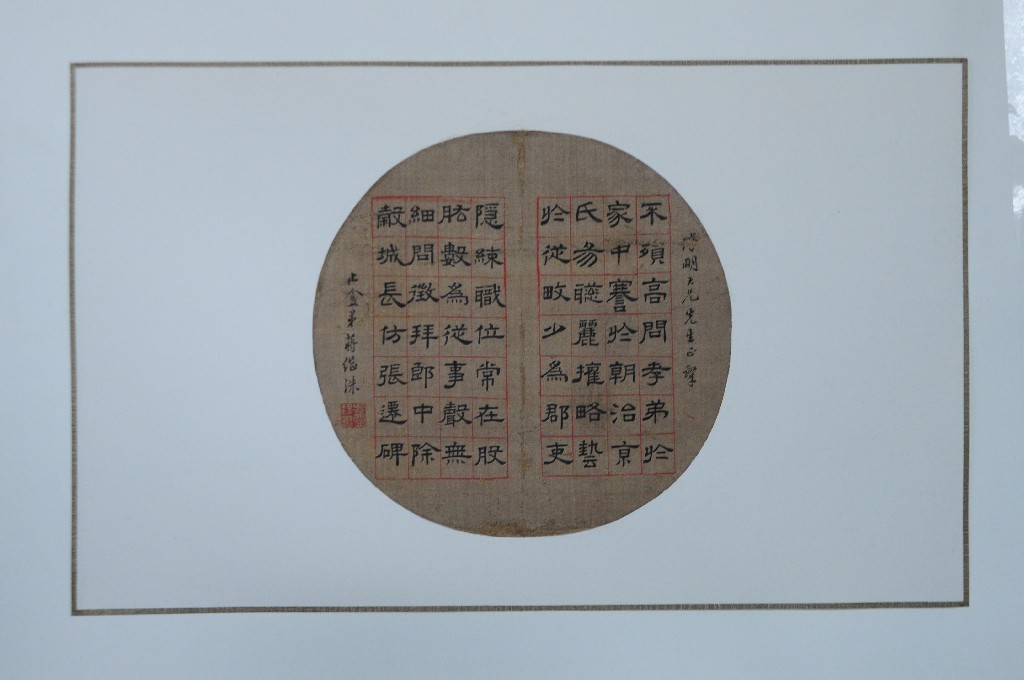 明大兄先生正
不殞高問孝弟於
家中謇於朝治京
氏易聰麗權略藝
於從畋少為郡吏
隱練職位常在股
肱數為從事聲無
細問徵拜郎中除
穀城長仿張遷碑
止盦弟蔣洙